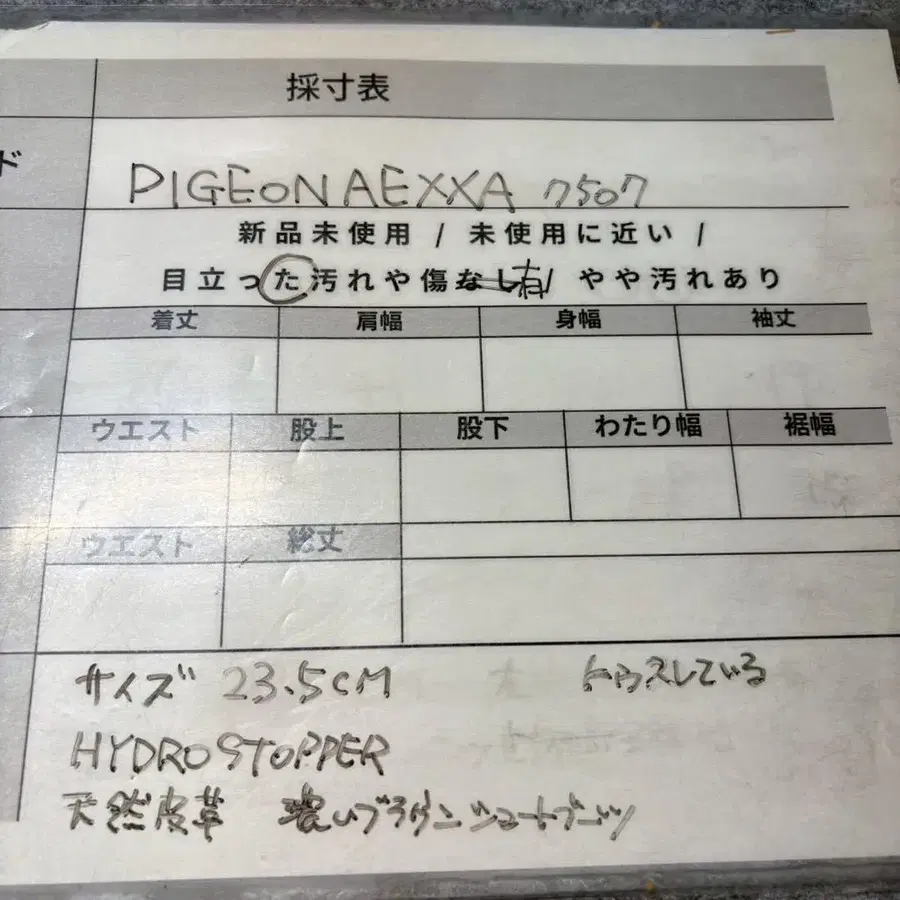 採寸表
ド
PIGEON AEXXA 7507
新品未使用 / 未使用に近い /
目立った汚れや傷なし有/ やや汚れあり
着丈 肩幅 身幅 袖丈
ウエスト 股上 股下 わたり幅 裾幅
ウエスト 総丈
サイズ 23.5CM
HYDROSTOPPER
天然皮革 濃いブラウンショートブーツ